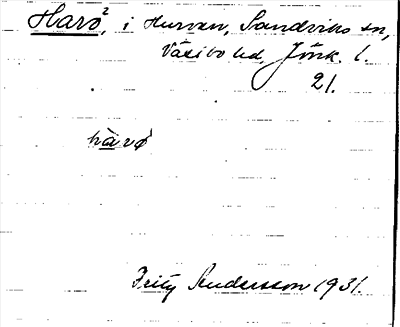 Harö², i Hurven, Sandviks sn,
Västbo hd, Jönk. l.
21.
hàvø
Fritz Andersson 1931.